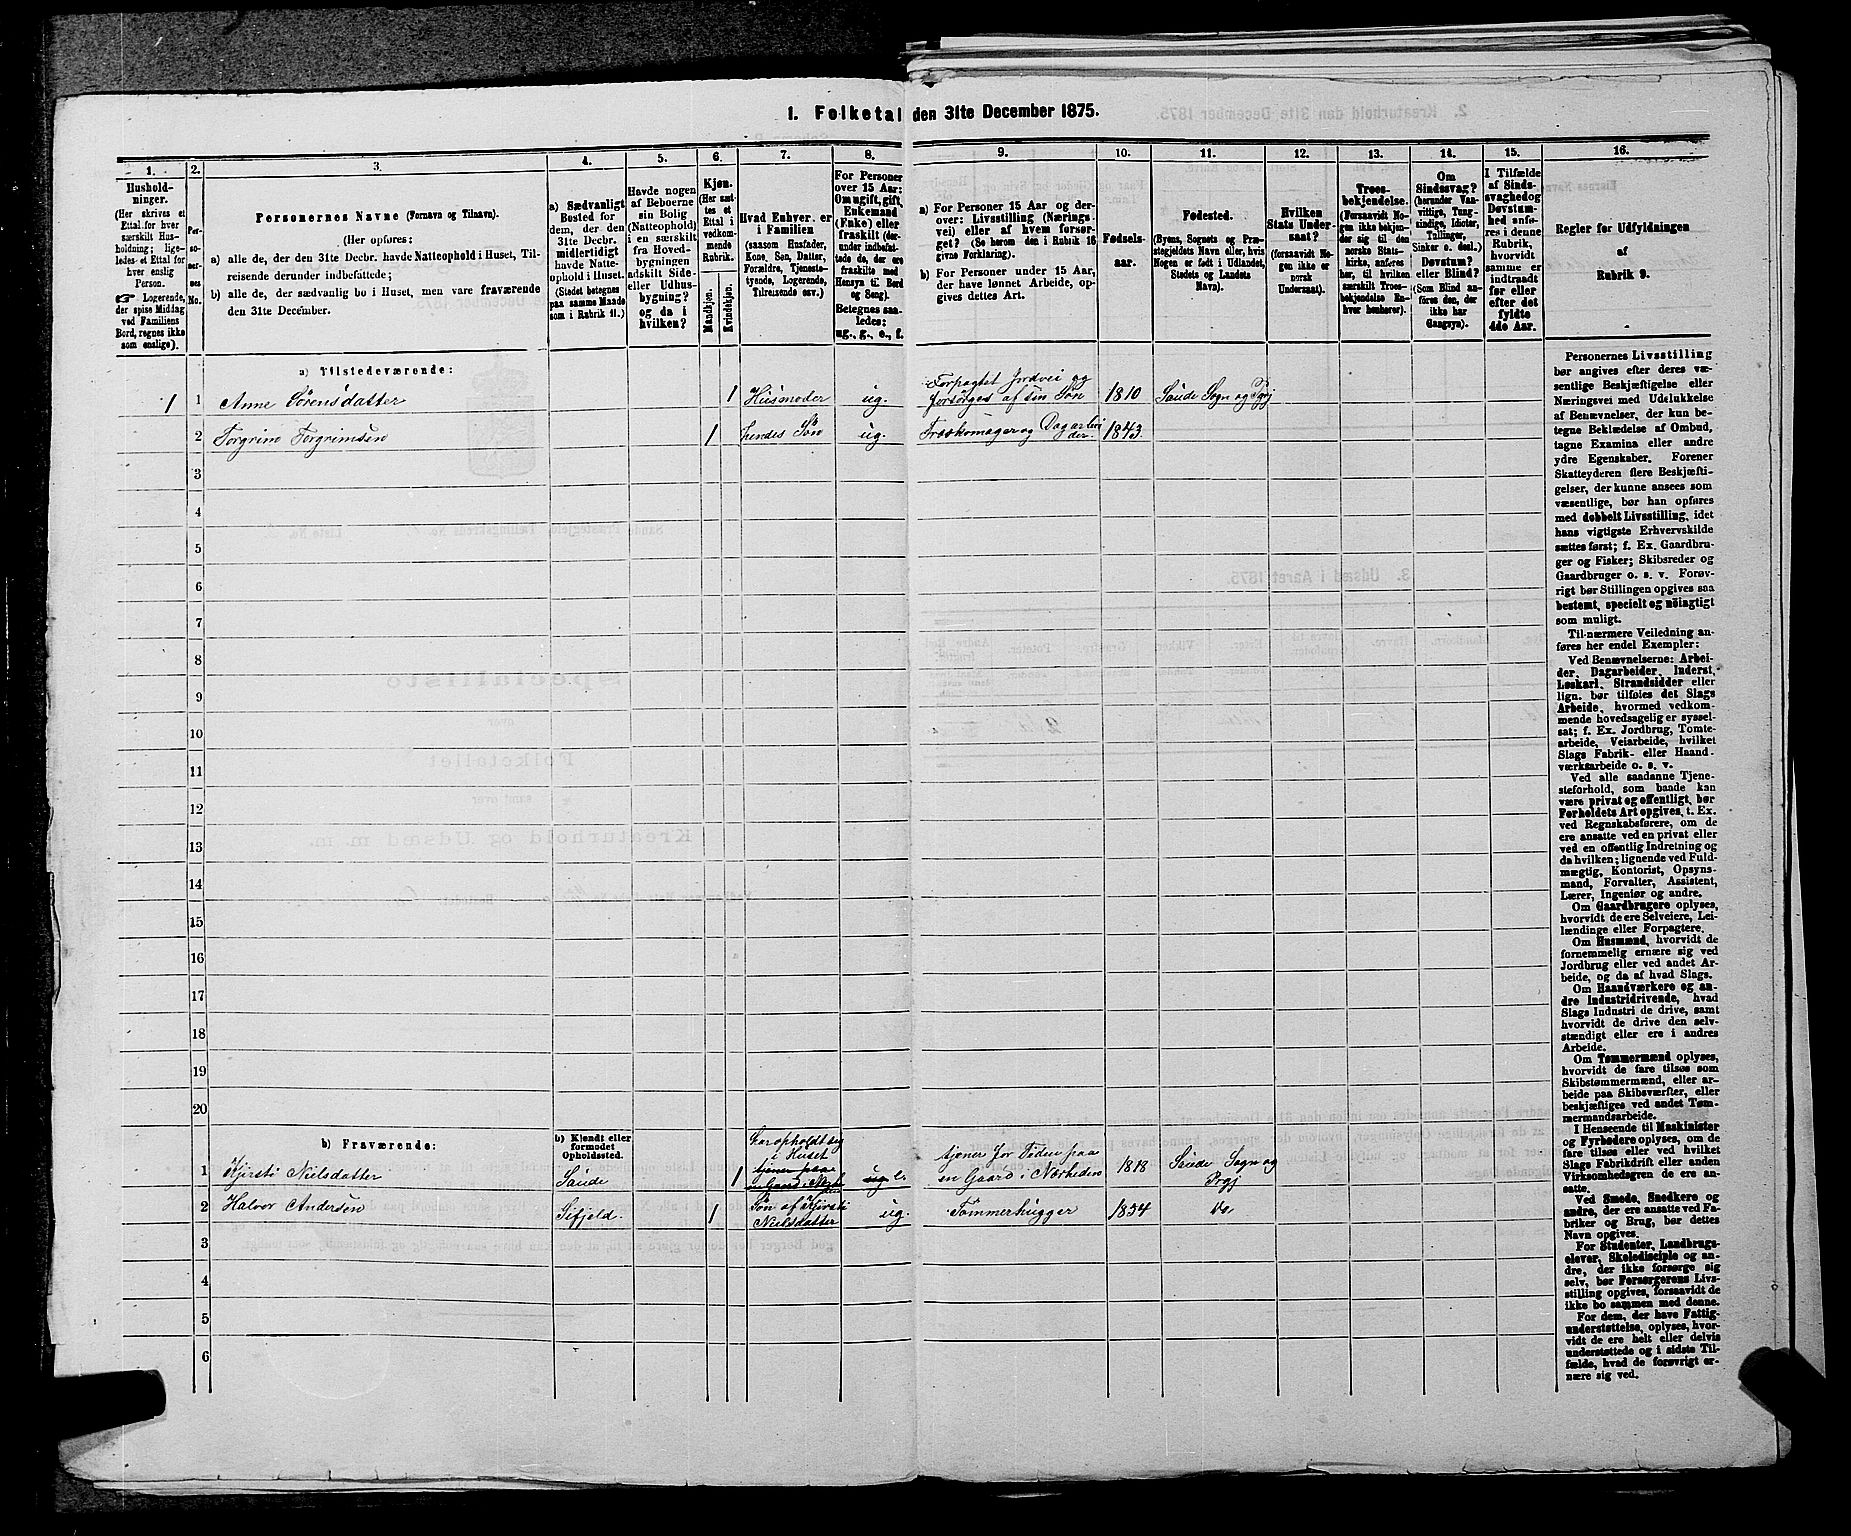 1. Folketal den 31te December 1875.
1. 2. 3. 4. 5. 6. 7. 8. 9. 10. 11. 12. 13. 14. 15. 16.
Hushold-
ninger.
(Her skrives et
Ettal for hver
særskilt Hus-
holdning; lige-
ledes et Ettal for
hver enslig
Person.
☞ Logerende,
der spise Middag
ved Familiens
Bord, regnes ikke
som enslige).
Per-
so-
ner-
nes
No.
Personernes Navne (Fornavn og Tilnavn).
(Her opføres:
a) alle de, der den 31te Decbr. havde Natteophold i Huset, Til-
reisende derunder indbefattede;
b) alle de, der sædvanlig bo i Huset, men vare fraværende
den 31te December.
a) Sædvanligt
Bosted for
dem, der den
31te Decbr.
midlertidigt
havde Natte-
ophold i Huset.
(Stedet betegnes
paa samme Maade
som i Rubrik 11.)
Havde nogen
af Beboerne
sin Bolig
(Natteophold)
i en særskilt
fra Hoved-
bygningen
adskilt Side-
eller Udhus-
bygning?
og da i
hvilken?
Kjøn.
(Her sæt-
tes et
Ettal i
vedkom-
mende
Rubrik.
Mandkjøn.
Kvindekjøn.
Hvad Enhver er
i Familien
(saasom Husfader,
Kone, Søn, Datter,
Forældre, Tjeneste-
tyende, Logerende,
Tilreisende osv.)
For Personer
over 15 Aar:
Om ugift, gift,
Enkemand
(Enke) eller
fraskilt (der-
under indbefat-
tede de, der ere
fraskilte med
Hensyn til Bord
og Seng).
Betegnes saa-
ledes:
ug., g., e., f.
a) For Personer 15 Aar og der-
over: Livsstilling (Nærings-
vei) eller af hvem forsør-
get? (Se herom den i Rubrik 16
givne Forklaring).
b) For Personer under 15 Aar,
der have lønnet Arbeide, op-
gives dettes Art.
Fødsels-
aar.
Fødested.
(Byens, Sognets og Præ-
stegjeldets Navn eller, hvis
Nogen er født i Udlandet,
Stedets og Landets
Navn).
Hvilken
Stats Under-
saat?
(forsaavidt No-
gen ikke er
norsk
Undersaat).
Troes-
bekjendelse.
(Forsaavidt No-
gen ikke bekjen-
der sig til den
norske Stats-
kirke, anføres
her, til hvilken
særskilt Troes-
bekjendelse En-
hver henhører).
Om
Sindssvag?
(herunder Van-
vittige, Tung-
sindige, Idioter,
Tullinger,
Sinker o. desl.)
Døvstum?
eller Blind?
(Som Blind an-
føres den, der
ikke har
Gangsyn).
I Tilfælde
af Sinds-
svaghed og
Døvstum-
hed anfø-
res i denne
Rubrik,
hvorvidt
samme er
indtraadt
før eller
efter det
fyldte
4de Aar.
Regler for Udfyldningen
af
Rubrik 9.
a) Tilstedeværende:
1 1 Anne Sörensdatter 1 Husmoder ug. Forpagtet Jordvei og
forsørges af sin Søn 1810 Saude Sogn og Prgj
2 Torgrim Torgrimsen 1 hendes Søn ug. Træskomager og Dagarbei
der. 1843.
3
4
5
6
7
8
9
10
11
12
13
14
15
16
17
18
19
20
b) Fraværende:
b) Kjendt eller
formodet
Opholdssted.
1 Kjersti Nielsdatter Saude 1 har opholdt sig
i Huset
tjener paa
en Gaard i ug e. tjener for Tiden paa
en Gaard i Nordheden 1818 Saude Sogn og
Prgj
2 Halvor Andersen Sifjeld. 1 Søn af Kjersti
Nielsdatter ug. Tømmerhugger 1854 do.
3
4
5
6
Personernes Livsstilling
bør angives efter deres væ-
sentlige Beskjæftigelse eller
Næringsvei med Udelukkelse
af Benævnelser, der kun be-
tegne Beklædelse af Ombud,
tagne Examina eller andre
ydre Egenskaber. Forener
Skatteyderen flere Beskjæfti-
gelser, der kunne ansees som
væsentlige, bør han opføres
med dobbelt Livsstilling, idet
hans vigtigste Erhvervskilde
sættes først; f. Ex. Gaardbru-
ger og Fisker; Skibsreder og
Gaardbruger o. s. v. Forøv-
rigt bør Stillingen opgives saa
bestemt, specielt og nøiagtigt
som muligt.
Til nærmere Veiledning an-
føres her endel Exempler:
Ved Benævnelserne: Arbei-
der, Dagarbeider, Inderst,
Løskarl, Strandsidder eller
lign. bør tilføies det Slags
Arbeide, hvormed vedkom-
mende hovedsagelig er syssel-
sat; f. Ex. Jordbrug, Tomte-
arbeide, Veiarbeide, hvilket
Slags Fabrik- eller Haand-
værksarbeide o. s. v.
Ved alle saadanne Tjene-
steforhold, som baade kan
være privat og offentligt, bør
Forholdets Art opgives, t. Ex.
ved Regnskabsførere, om de
ere ansatte ved en privat eller
ved en offentlig Indretning og
da hvilken; lignende ved Fuld-
mægtig, Kontorist, Opsyns-
mand, Forvalter, Assistent,
Lærer, Ingeniør og andre.
Om Gaardbrugere oplyses,
hvorvidt de ere Selveiere, Lei-
lændinge eller Forpagtere.
Om Husmænd, hvorvidt de
fornemmelig ernære sig ved
Jordbrug eller ved andet Ar-
beide, og da af hvad Slags.
Om Haandværkere og an-
dre Industridrivende, hvad
Slags Industri de drive, samt
hvorvidt de drive den selv-
stændigt eller ere i andres
Arbeide.
Om Tømmermænd oplyses,
hvorvidt de fare tilsøs som
Skibstømmermænd, eller ar-
beide paa Skibsværfter, eller
beskjæftiges ved andet Tøm-
mermandsarbeide.
I Henseende til Maskinister
og Fyrbødere oplyses, om de
fare tilsøs eller ved hvilket
Slags Fabrikdrift eller anden
Virksomhed de ere an-
satte.
Ved Smede, Snedkere og
andre, der ere ansatte ved Fa-
briker og Brug, bør dettes
Navn opgives.
For Studenter, Landbrugs-
elever, Skoledisciple og an-
dre, der ikke forsørge sig
selv, bør Forsørgerens Livs-
stilling opgives, forsaavidt de
ikke bo sammen med denne.
For dem, der have Fattig-
understøttelse, oplyses, hvor-
vidt de ere helt eller delvis
understøttede og i sidste Til-
fælde, hvad de forøvrigt er-
nære sig ved.